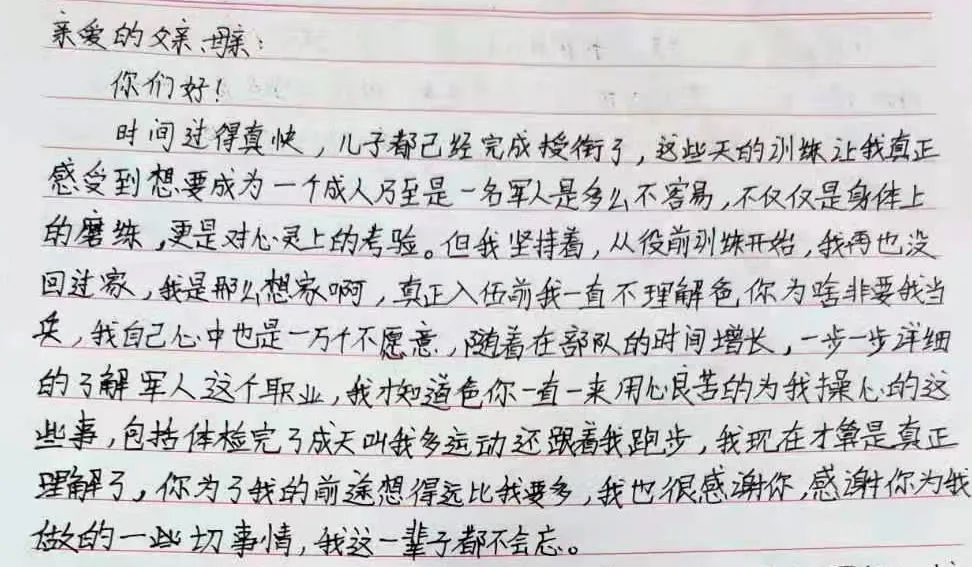 亲爱的父亲、母亲：
你们好！
时间过得真快，儿子都已经完成授衔了，这些天的训练让我真正
感受到想要成为一个成人乃至是一名军人是多么不容易，不仅仅是身体上
的磨练，更是对心灵上的考验。但我坚持着，从役前训练开始，我再也没
回过家，我是那么想家啊，真正入伍前我一直不理解爸，你为啥非要我当
兵，我自己心中也是一万个不愿意，随着在部队的时间增长，一步一步详细
的了解军人这个职业，我才知道爸你一直一来用心良苦的为我操心的这
些事，包括体检完了成天叫我多运动还跟着我跑步，我现在才算是真正
理解了，你为了我的前途想得远比我要多，我也很感谢你，感谢你为我
做的一些切事情，我这一辈子都不会忘。